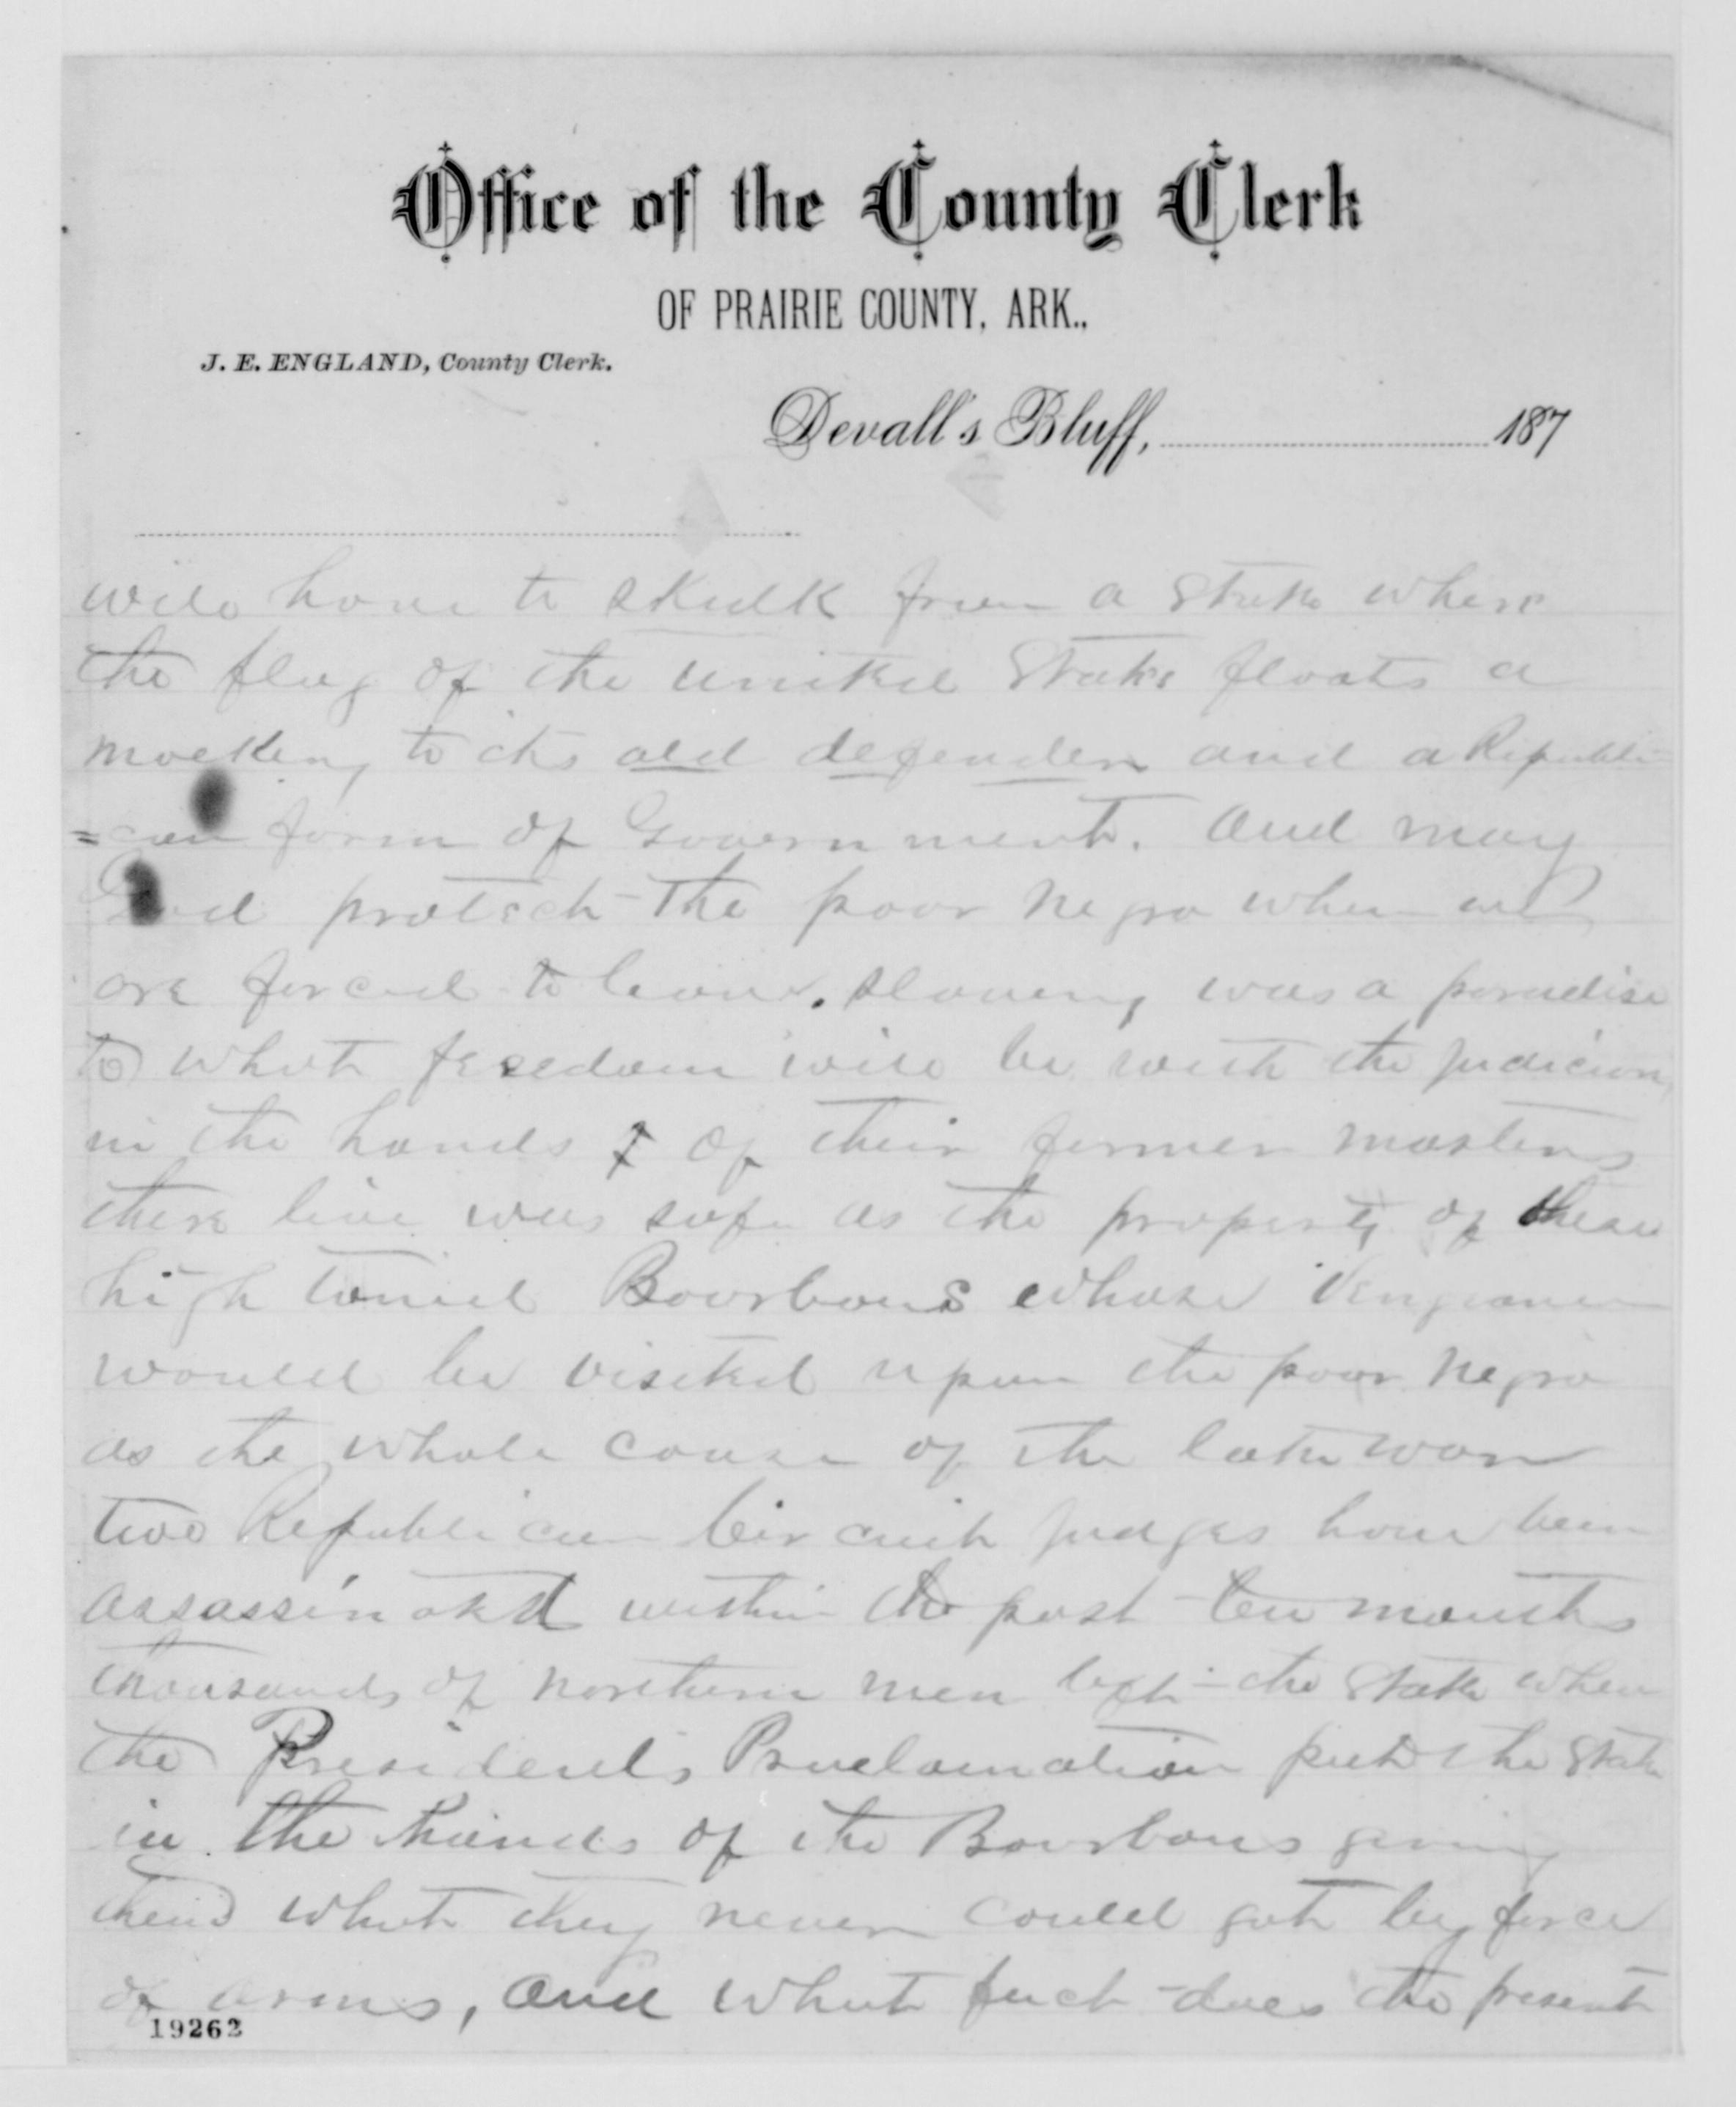 Office of the County Clerk
OF PRAIRIE COUNTY, ARK.,
J. E. ENGLAND, County Clerk.
Devall's Bluff, 187
will have to skulk from a State where
the flag of the united States floats a
mocking to its old defenders and a Republi-
=can form of Government. And may
God protect the poor negro when we
are forced to leave. Slavery was a paradise
to what freedom will be with the judiciary
in the hands of their former masters
there live was safe as the property of these
high toned Bourbons whose Vengeance
would be visited upon the poor negro
as the whole cause of the late war
two Republican Circuit judges have been
assassinated within the past ten months
thousands of northern men left the State when
the Presidents Proclamation put the State
in the hands of the Bourbons giving
them what they never could get by force
of arms, and what fuct does the present
19262